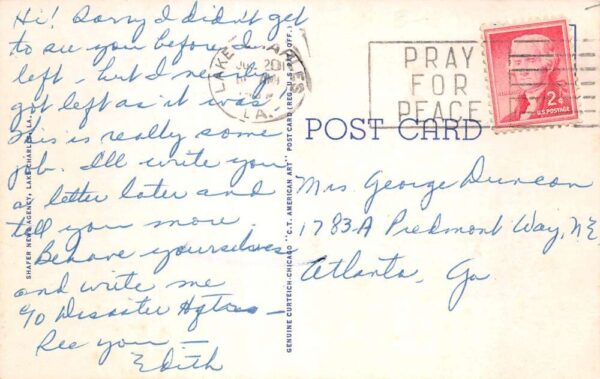 Hi! Sorry I didn't get
to see you before I
left - but I nearly
got left as it was.
This is really some
job. I'll write you
a letter later and
tell you more.
Behave yourselves
and write me
c/o Disaster Hqtrs -
See you -
Edith
SHAFER NEWS AGENCY, LAKE CHARLES, LA.
GENUINE CURTEICH-CHICAGO "C.T. AMERICAN ART" POST CARD (REG. U.S. PAT. OFF.)
LAKE CHARLES
LA.
PRAY
FOR
PEACE
2¢
U.S. POSTAGE
POST CARD
Mrs George Duncan
1783A Piedmont Way, N.E.
Atlanta, Ga